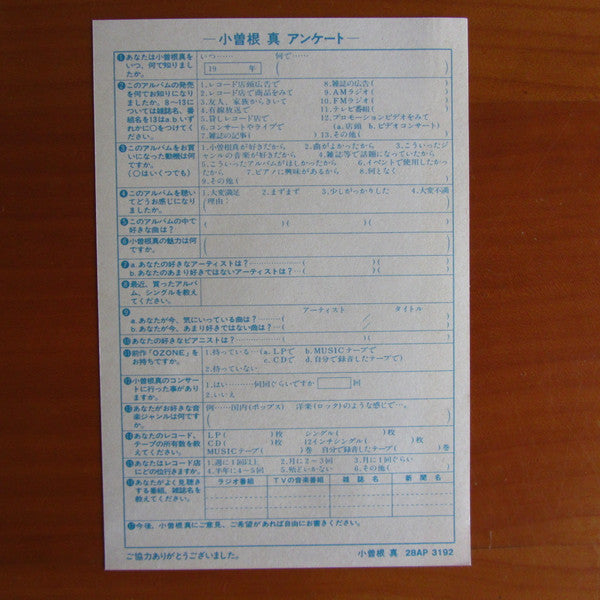 ―小曽根 真 アンケート―
❶あなたは小曽根真を
いつ、何で知りました
か。
いつ…… 何で……
19 年 ( )
❷このアルバムの発売
を何でお知りになりま
したか。8～13に
ついては雑誌名、番
組名を13はa.b.いず
れかに○をつけてく
ださい。
1.レコード店頭広告で 8.雑誌の広告( )
2.レコード店で商品をみて 9.AMラジオ( )
3.友人、家族からきいて 10.FMラジオ( )
4.有線放送で 11.テレビ番組( )
5.貸しレコード店で 12.プロモーションビデオをみて
6.コンサートやライブで (a.店頭 b.ビデオコンサート)
7.雑誌の記事( ) 13.その他( )
❸このアルバムをお買
いになった動機は何
ですか。
(○はいくつでも)
1.小曽根真が好きだから 2.曲がよかったから 3.こういったジ
ャンルの音楽が好きだから 4.雑誌等で話題になっていたから
5.こういったアルバムがほしかったから 6.イベントで使用したかっ
たから 7.ピアノに興味があるから 8.何となく
9.その他( )
❹このアルバムを聴いて
どうお感じになり
ましたか。
1.大変満足 2.まずまず 3.少しがっかりした 4.大変不満
(理由: )
❺このアルバムの中で
好きな曲は?
( )( )( )
❻小曽根真の魅力は何
ですか。
( )
❼a.あなたの好きなアーティストは?……( )( )
b.あなたのあまり好きではないアーティストは?( )( )
❽最近、買ったアルバ
ム、シングルを教え
てください。
❾ アーティスト タイトル
a.あなたが今、気にいっている曲は?………( / )
b.あなたが今、あまり好きではない曲は?…( / )
❿あなたの好きなピアニストは?……( )( )( )
⓫前作「OZONE」を
お持ちですか。
1.持っている…(a.LPで b.MUSICテープで
c.CDで d.自分で録音したテープで)
2.持っていない
⓬小曽根真のコンサー
トに行った事があり
ますか。
1.はい……何回ぐらいですか 回
2.いいえ
⓭あなたがお好きな音
楽ジャンルは何です
か。
例……国内(ポップス) 洋楽(ロック)のような感じで…。
⓮あなたのレコード、
テープの所有数を教
えてください。
LP( )枚 シングル( )枚
CD( )枚 12インチシングル( )枚
MUSICテープ( )巻 自分で録音したテープ( )巻
⓯あなたはレコード店
にどの位行きますか。
1.週に1回以上 2.月に2～3回 3.月に1回ぐらい
4.半年に4～5回 5.殆どいかない 6.その他( )
⓰あなたがよく見聴き
する番組、雑誌名を
教えてください。
ラジオ番組 TVの音楽番組 雑誌名 新聞名
⓱今後、小曽根真にご意見、ご希望があれば自由にお書きください。
ご協力ありがとうございました。 小曽根 真 28AP 3192